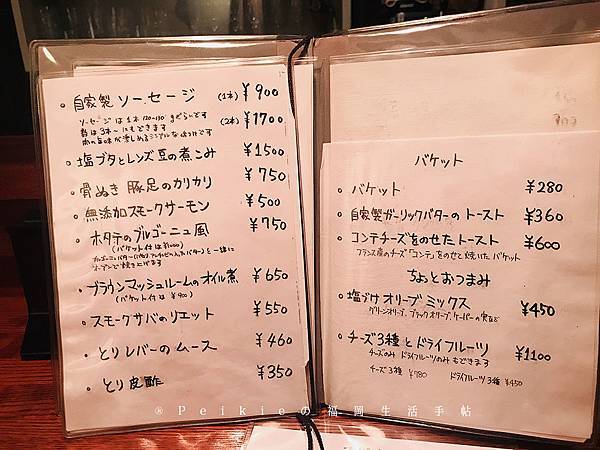 ・自家製 ソーセージ (1本) ¥900
ソーセージは1本 120~130gぐらいです (2本) ¥1700
数は3本~にもできます
肉の旨味が楽しめるシンプルな味つけです
・塩ブタとレンズ豆の煮こみ ¥1500
・骨ぬき 豚足のカリカリ ¥750
・無添加スモークサーモン ¥500
・ホタテのブルゴーニュ風 ¥750
(バケット付は¥1000)
オーブンで焼き上げます
・ブラウンマッシュルームのオイル煮 ¥650
(バケット付は ¥900)
・スモークサバのリエット ¥550
・とりレバーのムース ¥460
・とり皮酢 ¥350
バケット
・バケット ¥280
・自家製ガーリックバターのトースト ¥360
・コンテチーズをのせたトースト ¥600
フランス産のチーズ「コンテ」をのせて焼いたバケット
ちょっとおつまみ
・塩づけオリーブミックス ¥450
グリーンオリーブ、ブラックオリーブ、ケーパーの実など
・チーズ3種とドライフルーツ ¥1100
チーズのみ ドライフルーツのみもできます
チーズ3種 ¥780 ドライフルーツ3種 ¥450
®Peikieの福岡生活手帖